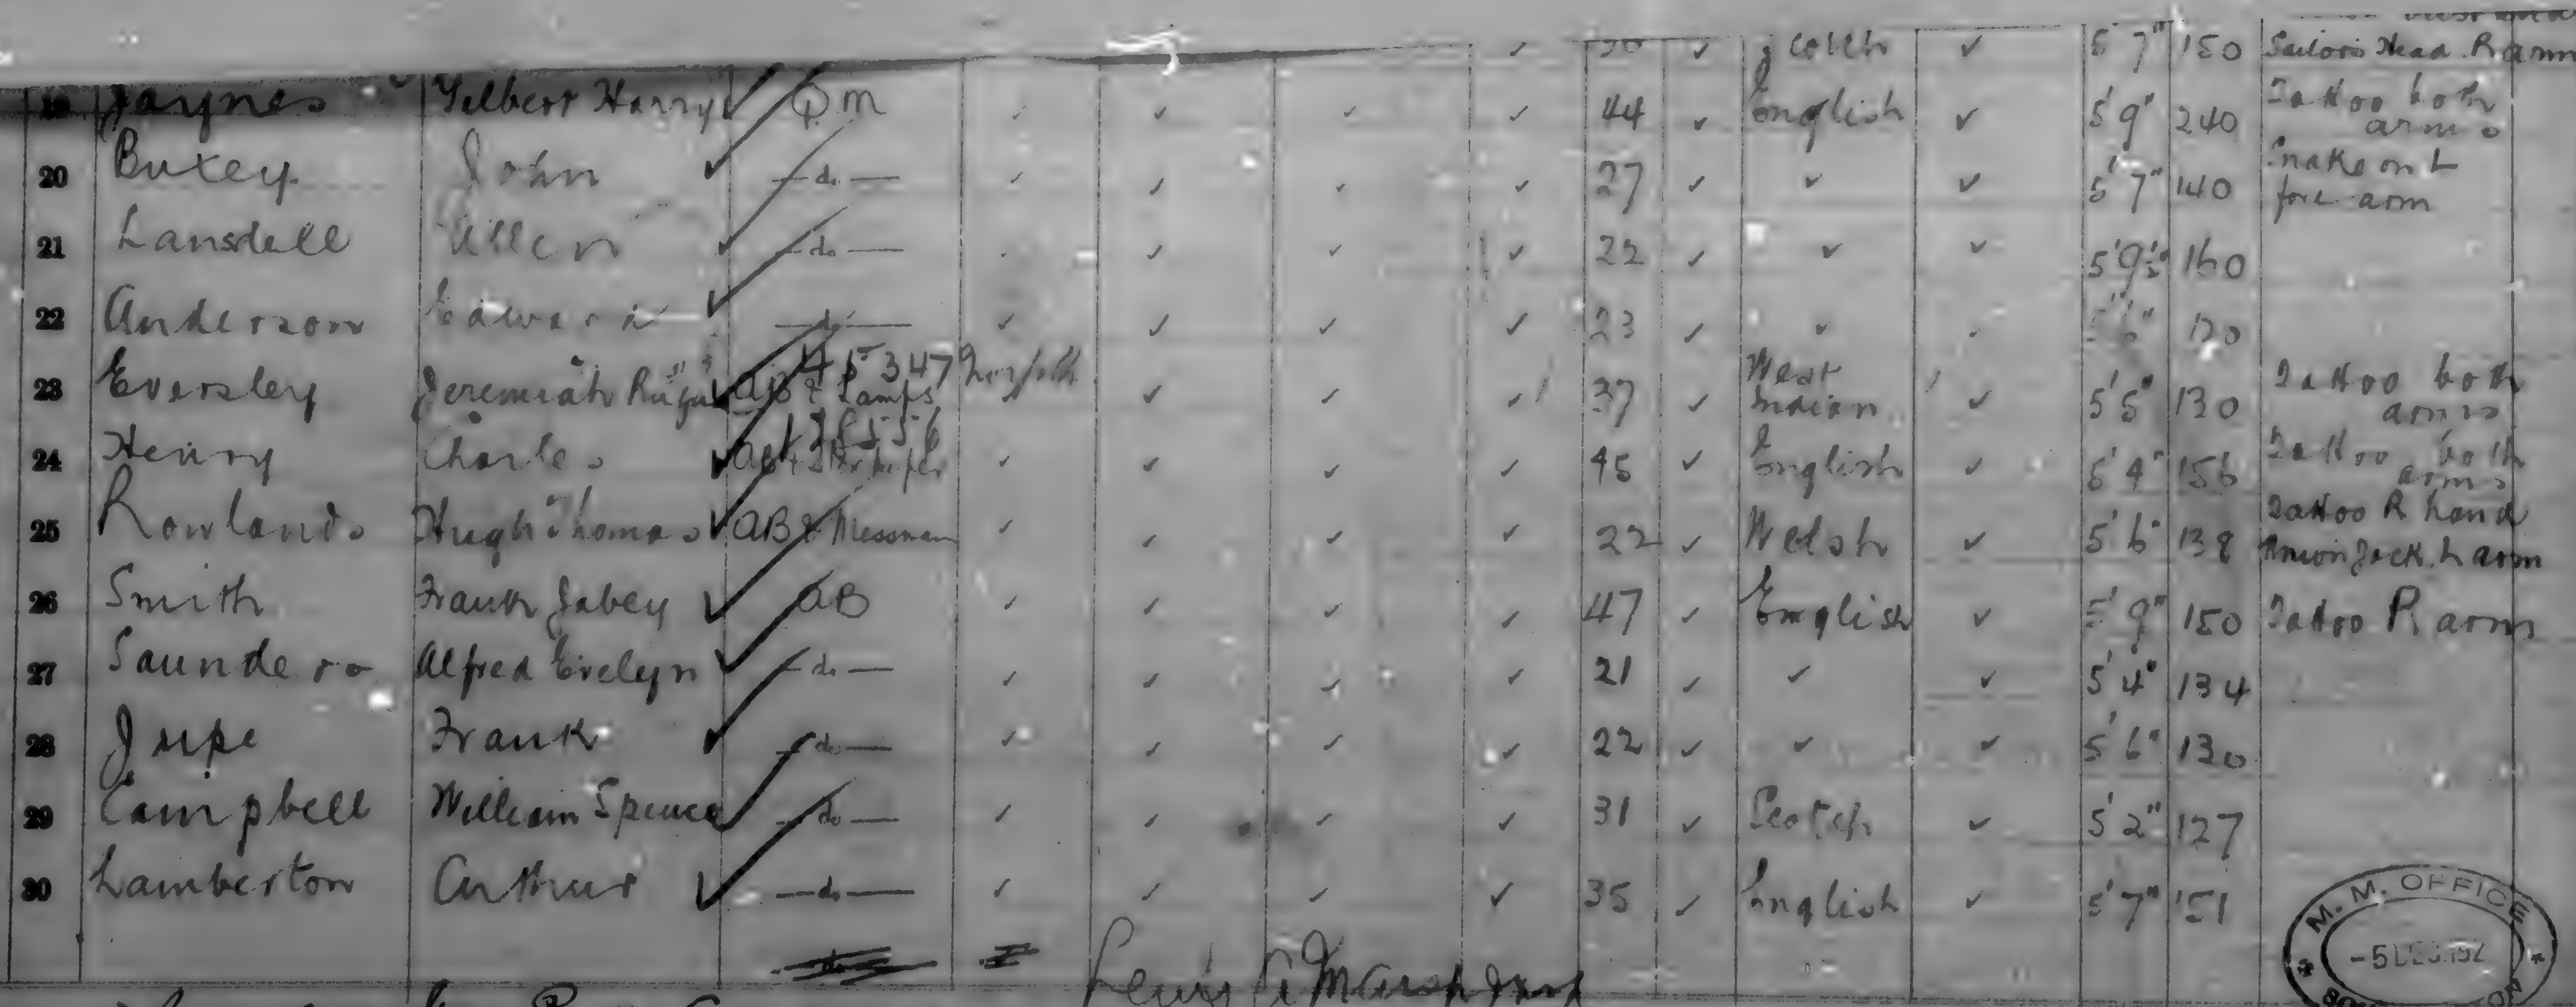 ✓ ✓ Scotch ✓ 5'7" 150 Sailors Head R arm
19 Jaynes Gilbert Harry ✓ QM ✓ ✓ ✓ ✓ 44 ✓ English ✓ 5'9" 240 Tattoo both arms
20 Buxey John ✓ —do— ✓ ✓ ✓ ✓ 27 ✓ ✓ ✓ 5'7" 140 Snake on L fore arm
21 Lansdell Allen ✓ —do— ✓ ✓ ✓ 22 ✓ ✓ ✓ 5'9½" 160
22 Anderson Edward ✓ —do— ✓ ✓ ✓ ✓ 23 ✓ ✓ ✓ 5'6" 120
45347 Norfolk
23 Eversley Jeremiah Rufus ✓ AB & Lamps ✓ ✓ ✓ ✓ 37 ✓ West Indian ✓ 5'5" 130 Tattoo both arms
24 Henry Charles ✓ AB ✓ ✓ ✓ ✓ 45 ✓ English ✓ 5'4" 156 Tattoo both arms
25 Rowlands Hugh Thomas ✓ AB & Messman ✓ ✓ ✓ ✓ 22 ✓ Welsh ✓ 5'6" 138 Tattoo R hand Union Jack L arm
26 Smith Frank Jabey ✓ AB ✓ ✓ ✓ ✓ 47 ✓ English ✓ 5'9" 150 Tattoo R arm
27 Saunders Alfred Evelyn ✓ —do— ✓ ✓ ✓ ✓ 21 ✓ ✓ ✓ 5'4" 134
28 Jupe Frank ✓ —do— ✓ ✓ ✓ ✓ 22 ✓ ✓ ✓ 5'6" 130
29 Campbell William Spence ✓ —do— ✓ ✓ ✓ ✓ 31 ✓ Scotch ✓ 5'2" 127
30 Lamberton Arthur ✓ —do— ✓ ✓ ✓ ✓ 35 ✓ English ✓ 5'7" 151
M. M. OFFICE
-5 DEC